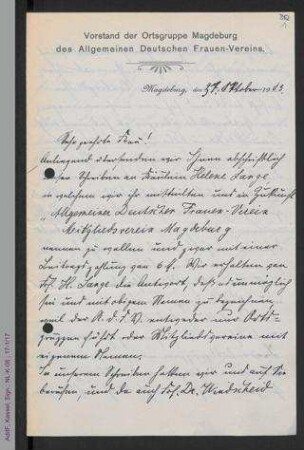 Vorstand der Ortsgruppe Magdeburg
des Allgemeinen Deutschen Frauen-Vereins.
Magdeburg, den 27. Oktober 1903.
Sehr geehrte Frau!
Anliegend übersenden wir Ihnen abschriftlich
Schreiben an Fräulein Helene Lange
in welchem wir ihr mitteilten uns in Zukunft
„Allgemeiner Deutscher Frauen-Verein
Mitgliedsverein Magdeburg
nennen zu wollen und zwar mit einer
Beitragszahlung von 6 M. Wir erhalten von
Frl. H. Lange die Antwort, daß es unmöglich
sei uns mit obigem Namen zu bezeichnen
weil der A. d. F. V. entweder nur Orts-
gruppen führt oder Mitgliedsvereine mit
eigenem Namen.
In unserem Schreiben hatten wir uns auf Sie
berufen, und da auch Frl. Dr. Windscheid
AddF, Kassel, Sign.: NL-K-05 ; 17-1/17